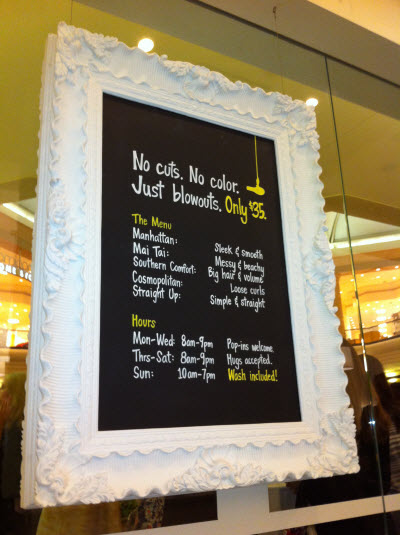 No cuts. No color.
Just blowouts. Only $35.
The Menu
Manhattan: Sleek & smooth
Mai Tai: Messy & beachy
Southern Comfort: Big hair & volume
Cosmopolitan: Loose curls
Straight Up: Simple & straight
Hours
Mon-Wed: 8am-9pm Pop-ins welcome.
Thrs-Sat: 8am-9pm Hugs accepted.
Sun: 10am-7pm Wash included!